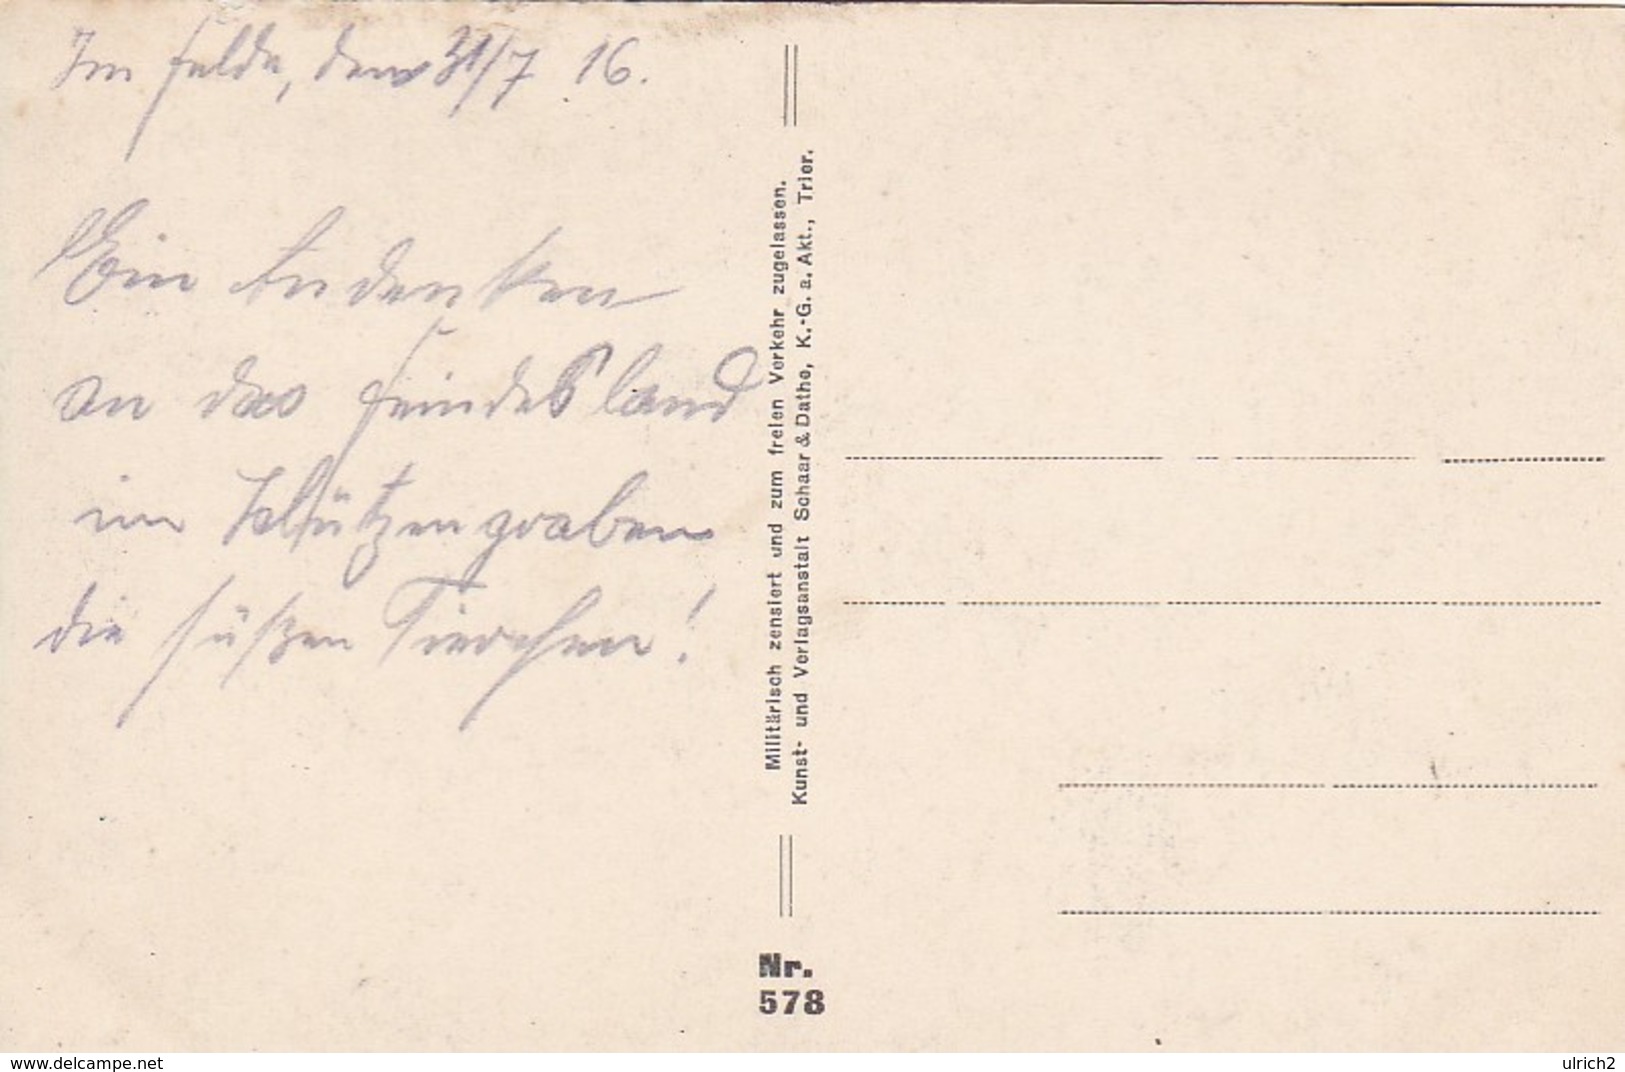 Im Felde, den 31/7 16.
Ein Andenken
an das Feindesland
im Schützengraben
die süßen Tierchen!
Militärisch zensiert und zum freien Verkehr zugelassen.
Kunst- und Verlagsanstalt Schaar & Dathe, K.-G. a. Akt., Trier.
Nr.
578
www.delcampe.net
ulrich2